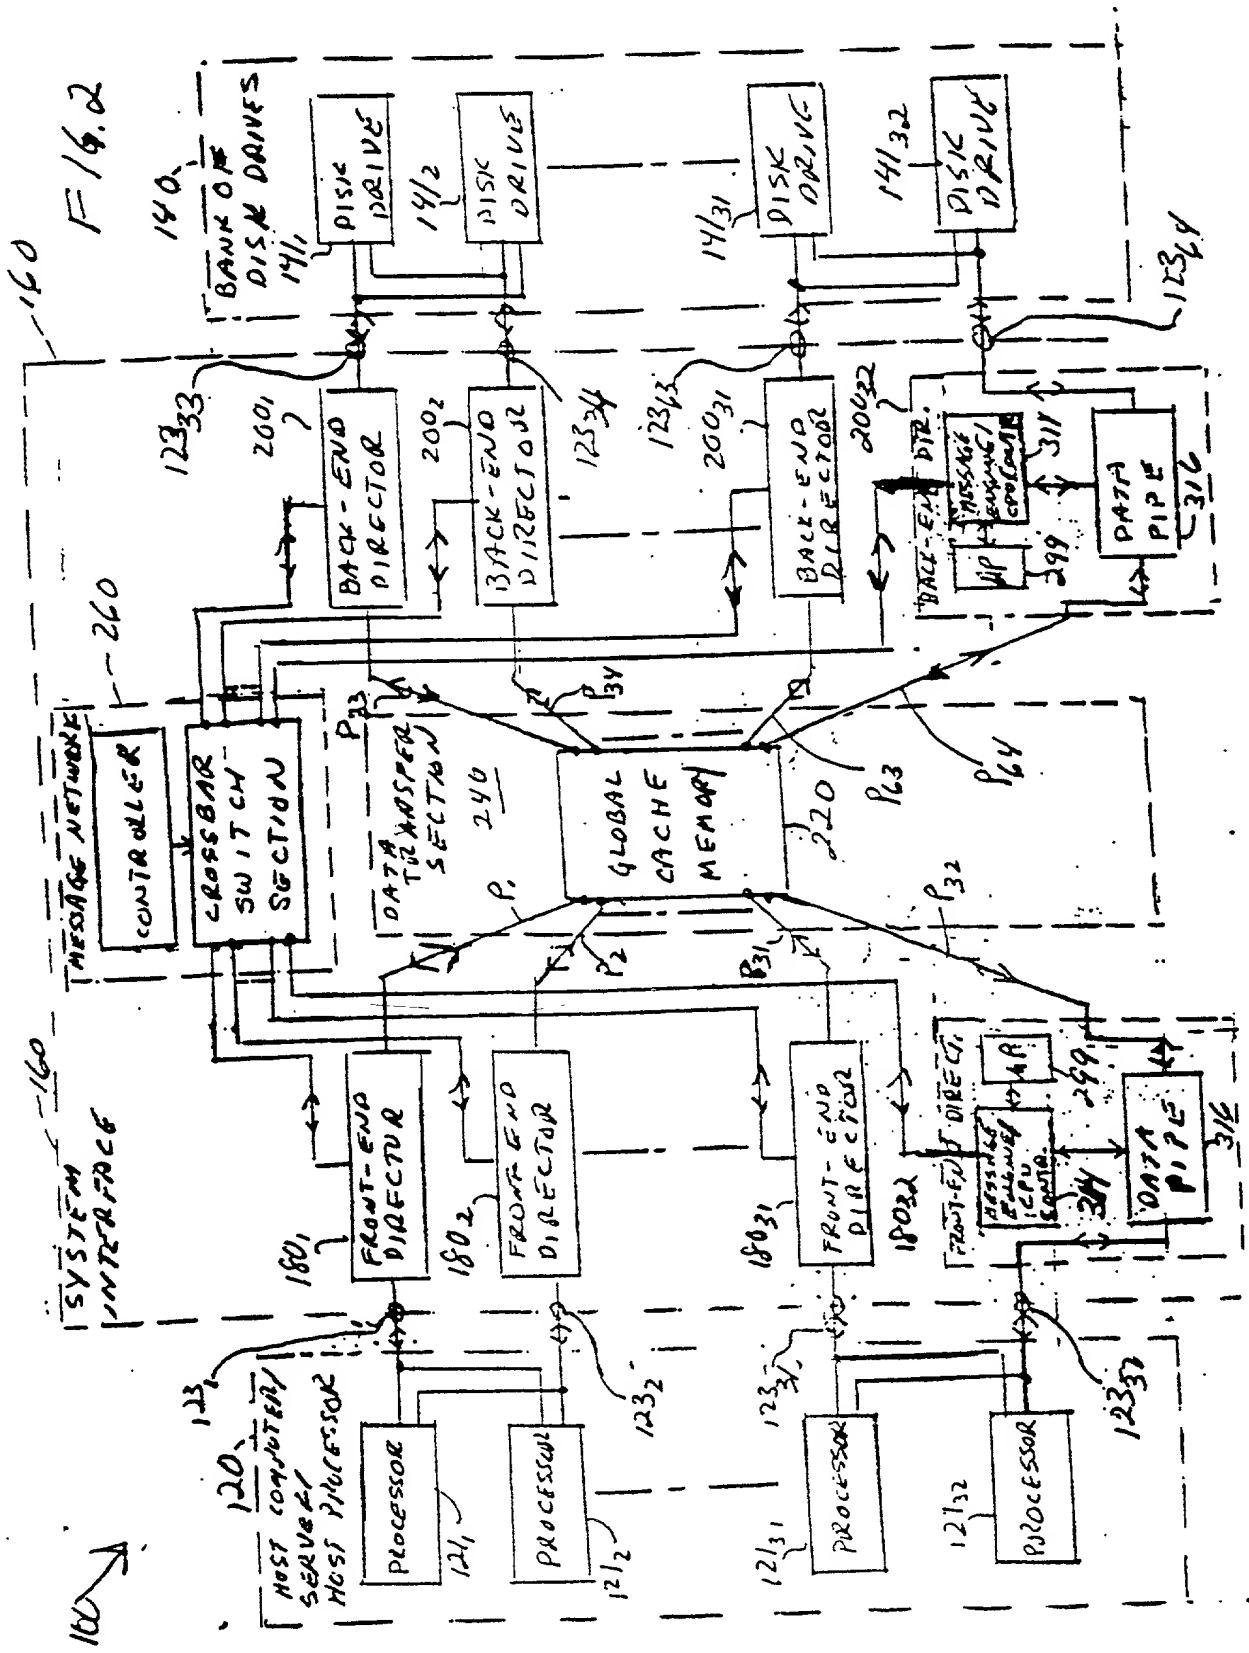 FIG. 2
100
120
HOST COMPUTER/
SERVER/
HOST PROCESSOR
PROCESSOR
121₁
PROCESSOR
121₂
PROCESSOR
121₃₁
PROCESSOR
121₃₂
123₁
123₂
123₃₁
123₃₂
SYSTEM
INTERFACE
160
160
180₁
FRONT-END
DIRECTOR
180₂
FRONT END
DIRECTOR
180₃₁
FRONT-END
DIRECTOR
180₃₂
FRONT-END DIRECT.
MESSAGE
ENGINE/
CPU
CONTR.
314
μP
299
DATA
PIPE
316
MESSAGE NETWORK
260
CONTROLLER
CROSSBAR
SWITCH
SECTION
DATA
TRANSFER
SECTION
240
GLOBAL
CACHE
MEMORY
220
P₁
P₂
P₃₁
P₃₂
P₃₃
P₃₄
P₆₃
P₆₄
200₁
BACK-END
DIRECTOR
200₂
BACK-END
DIRECTOR
200₃₁
BACK-END
DIRECTOR
200₃₂
BACK-END DIR.
MESSAGE
ENGINE/
μP
299
DATA
PIPE
316
123₃₃
123₃₄
123₆₃
123₆₄
140
BANK OF
DISK DRIVES
141₁
DISK
DRIVE
141₂
DISK
DRIVE
141₃₁
DISK
DRIVE
141₃₂
DISK
DRIVE